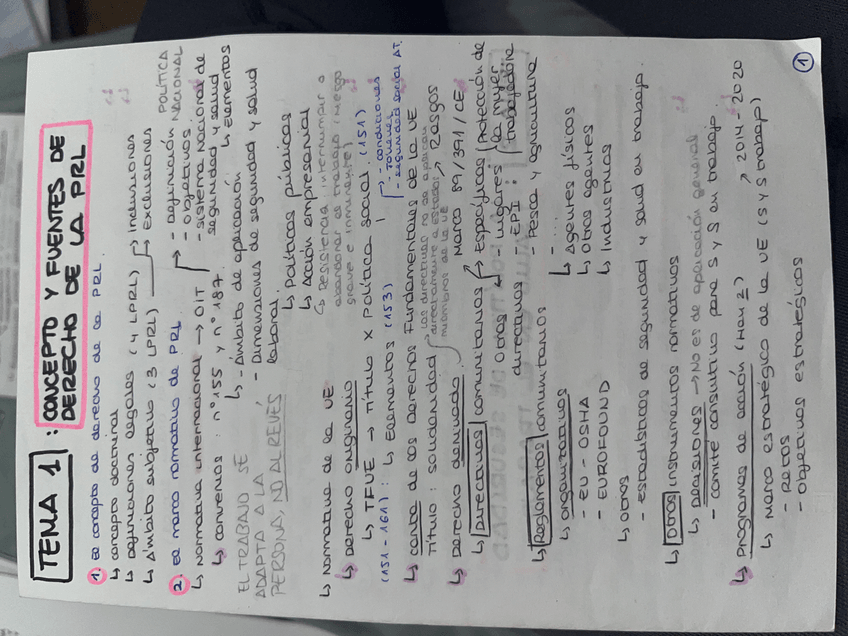 TEMA 1 : CONCEPTO Y FUENTES DE
DERECHO DE LA PRL
1. El concepto de derecho de la PRL.
↳ concepto doctrinal
↳ definiciones legales (4 LPRL)
↳ Ámbito subjetivo (3 LPRL) → Inclusiones
↳ Exclusiones
2. El marco normativo de PRL.
↳ Normativa internacional → OIT
→ - definición POLÍTICA NACIONAL
- objetivos
- sistema nacional de
seguridad y salud
↳ Elementos
↳ convenios: nº 155 y nº 187.
↳ - Ámbito de aplicación
- Dimensiones de seguridad y salud
laboral.
EL TRABAJO SE
ADAPTA A LA
PERSONA, NO AL REVÉS
↳ Políticas públicas
↳ Acción empresarial
↳ Resistencia (interrumpir o
abandonar el trabajo x riesgo
grave e inminente)
↳ Normativa de la UE
↳ Derecho originario
↳ TFUE → Título x política social (151)
(151-161) : ↳ Elementos (153)
→ - condiciones
- Jóvenes
- seguridad social AT.
↳ Carta de los derechos Fundamentales de la UE
Título: solidaridad
Las directivas no se aplican
directamente a estados
miembros de la UE
↳ Derecho derivado
Marco 89/391/CE → Rasgos
↳ Directivas comunitarias → Específicas (Protección de
la mujer
trabajadora
↳ Otras directivas
← - Lugares
- EPI
- Pesca y agricultura
- ....
↳ Agentes físicos
↳ Otros agentes
↳ Industrias
↳ Reglamentos comunitarios
↳ organizativos
- EU - OSHA
- EUROFOUND
↳ Otros
- estadísticas de seguridad y salud en trabajo.
↳ Otros instrumentos normativos
↳ Decisiones → No es de aplicación general
- comité consultivo para S y S en trabajo.
↳ Programas de acción (Hay 2)
↳ Marco estratégico de la UE (S y S trabajo) → 2014 - 2020
- Retos
- Objetivos estratégicos
1